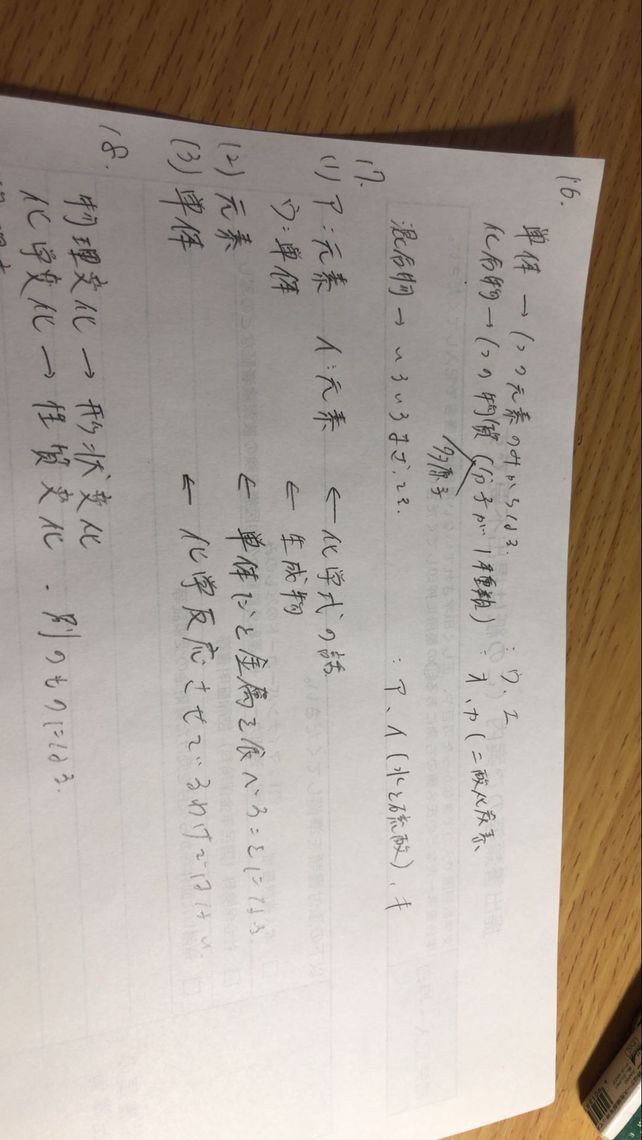 16.
単体 → 1つの元素のみからなる. : ウ、エ
化合物 → 1つの物質 (分子が1種類) : オ、カ (二酸化炭素
多原子
混合物 → いろいろまざってる. : ア、イ (水と硫酸)、キ
17.
(1) ア:元素 イ:元素 ← 化学式の話
ウ:単体 ← 生成物
(2) 元素 ← 単体だと金属を食べることになる.
(3) 単体 ← 化学反応させているわけではない.
18.
物理変化 → 形状変化
化学変化 → 性質変化 . 別のものになる.